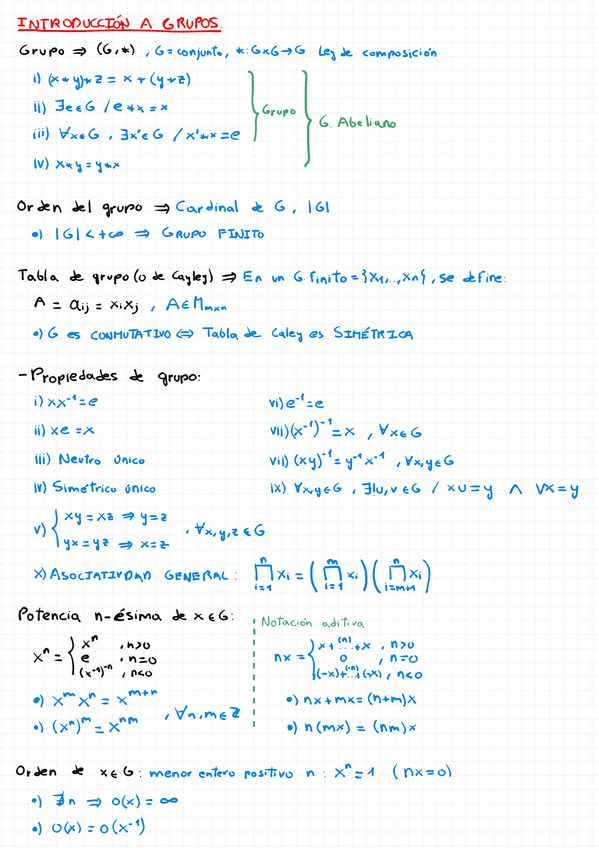 INTRODUCCIÓN A GRUPOS.
Grupo ⇒ (G,*) , G = conjunto, *: GxG → G Ley de composición
i) (x*y)*z = x*(y*z)
ii) ∃e∈G / e*x = x
iii) ∀x∈G , ∃x'∈G / x'*x = e
iv) x*y = y*x
Grupo
G. Abeliano
Orden del grupo ⇒ Cardinal de G , |G|
•) |G| < +∞ ⇒ GRUPO FINITO
Tabla de grupo (o de Cayley) ⇒ En un G. Finito = {x1,...,xn} , se define:
A = aij = xixj , A∈Mmxn
•) G es CONMUTATIVO ⇔ Tabla de Caley es SIMÉTRICA
- Propiedades de grupo:
i) xx⁻¹ = e
ii) xe = x
iii) Neutro único
iv) Simétrico único
v) { xy = xz ⇒ y = z
yx = yz ⇒ x = z , ∀x,y,z ∈ G
vi) e⁻¹ = e
vii) (x⁻¹)⁻¹ = x , ∀x∈G
vii) (xy)⁻¹ = y⁻¹x⁻¹ , ∀x,y∈G
ix) ∀x,y∈G , ∃!u,v∈G / xu = y ∧ vx = y
x) ASOCIATIVDAD GENERAL : ∏ⁿᵢ₌₁ xi = (∏ᵐᵢ₌₁ xi) (∏ⁿᵢ₌ₘ₊₁ xi)
Potencia n-ésima de x∈G:
xⁿ = { xⁿ , n>0
e , n=0
(x⁻¹)⁻ⁿ , n<0
•) xᵐxⁿ = xᵐ⁺ⁿ
•) (xⁿ)ᵐ = xⁿᵐ , ∀n,m∈Z
Notación aditiva
nx = { x+.(n).+x , n>0
0 , n=0
(-x)+.(-n).+(-x) , n<0
•) nx+mx = (n+m)x
•) n(mx) = (nm)x
Orden de x∈G: menor entero positivo n : xⁿ = 1 (nx=0)
•) ∄n ⇒ O(x) = ∞
•) O(x) = O(x⁻¹)